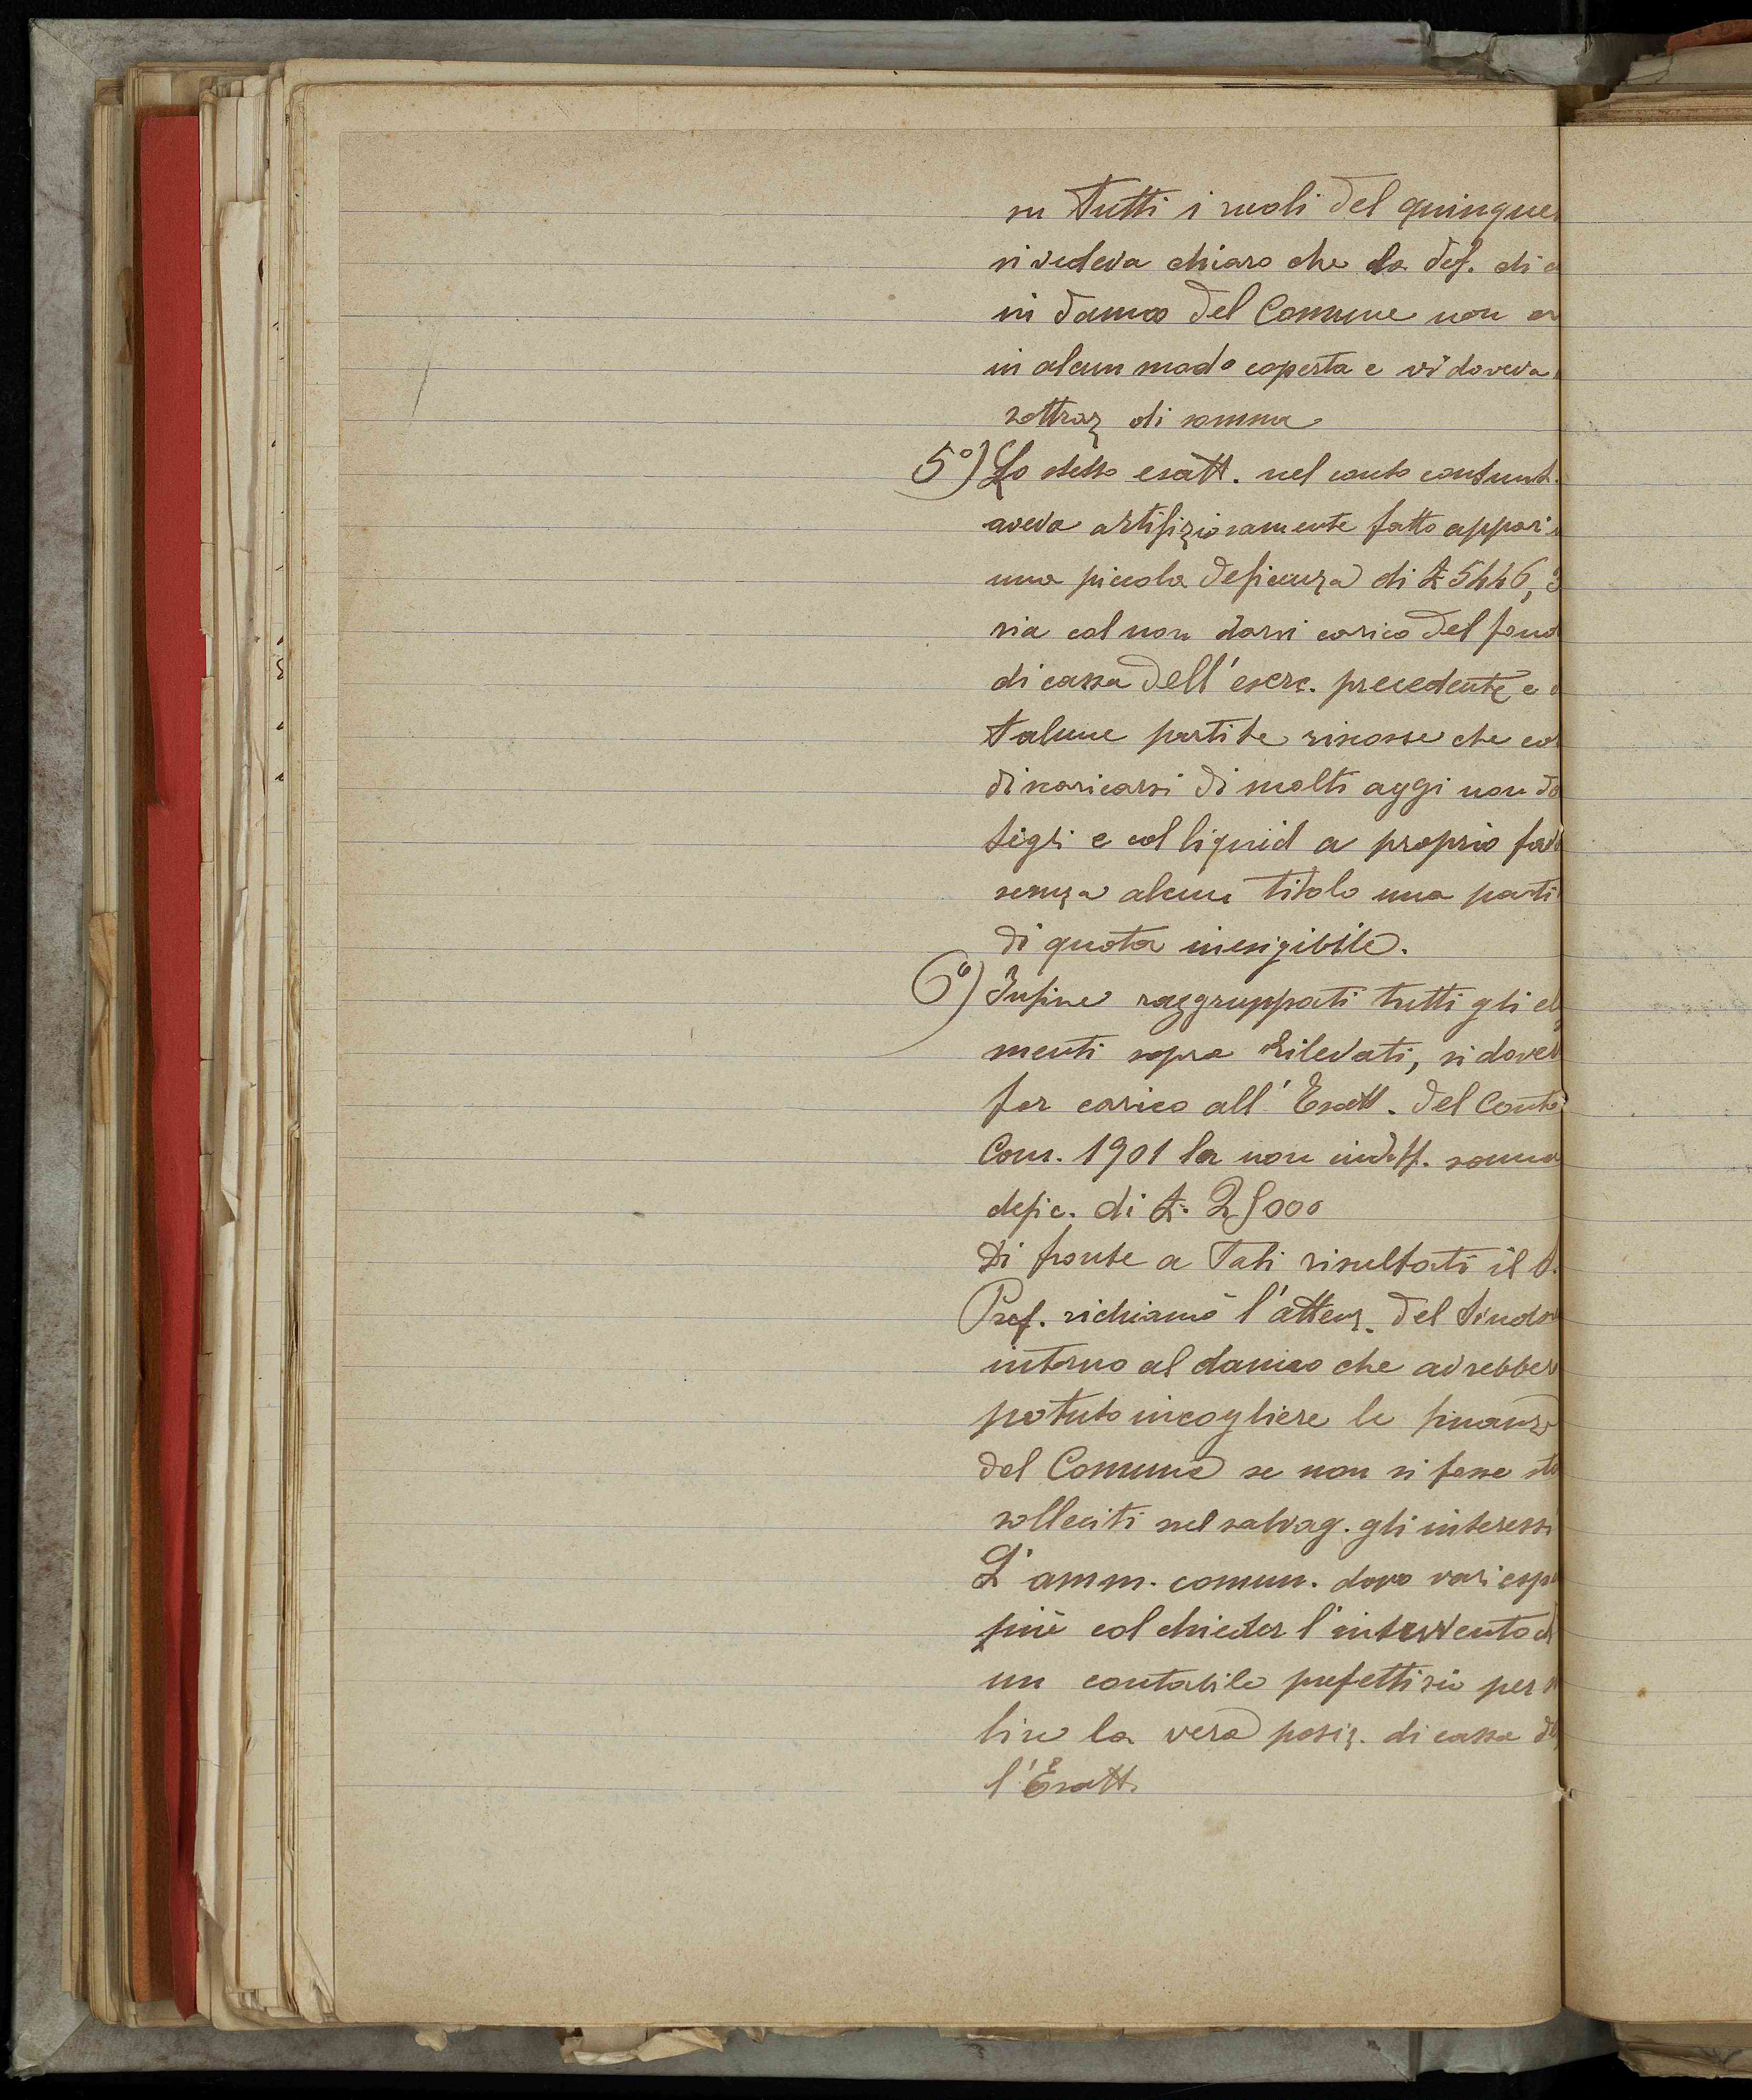 su tutti i ruoli del quinque
si vedeva chiaro che la def. di
in danno del Comune non er
in alcun modo coperta e vi doveva
sottraz di somma
5°) Lo stesso esatt. nel conto consunt.
aveva artifiziosamente fatto appari
una piccola deficenza di £ 5446,3
sia col non darsi carico del fond
di cassa dell'eserc. precedente e d
talune partite riscosse che col
discaricarsi di molti aggi non do
tigli e col liquid a proprio favo
senza alcun titolo una parti
di quota inesigibile.
6°) Infine raggruppati tutti gli ele
menti sopra rilevati, si dovev
far carico all'Esatt. del Conto
Com. 1901 la non indiff. somma
defic. di £. 25000
Di fronte a tali risultati il S.
Pref. richiamò l'attenz. del Sindac
intorno al danno che avrebber
potuto incogliere le finanze
del Comune se non si fosse sta
solleciti nel salvag. gli interessi
L'amm. comun. dopo vari esp
finì col chieder l'intervento di
un contabile prefettizio per
lire la vera posiz. di cassa del
l'Esatt.